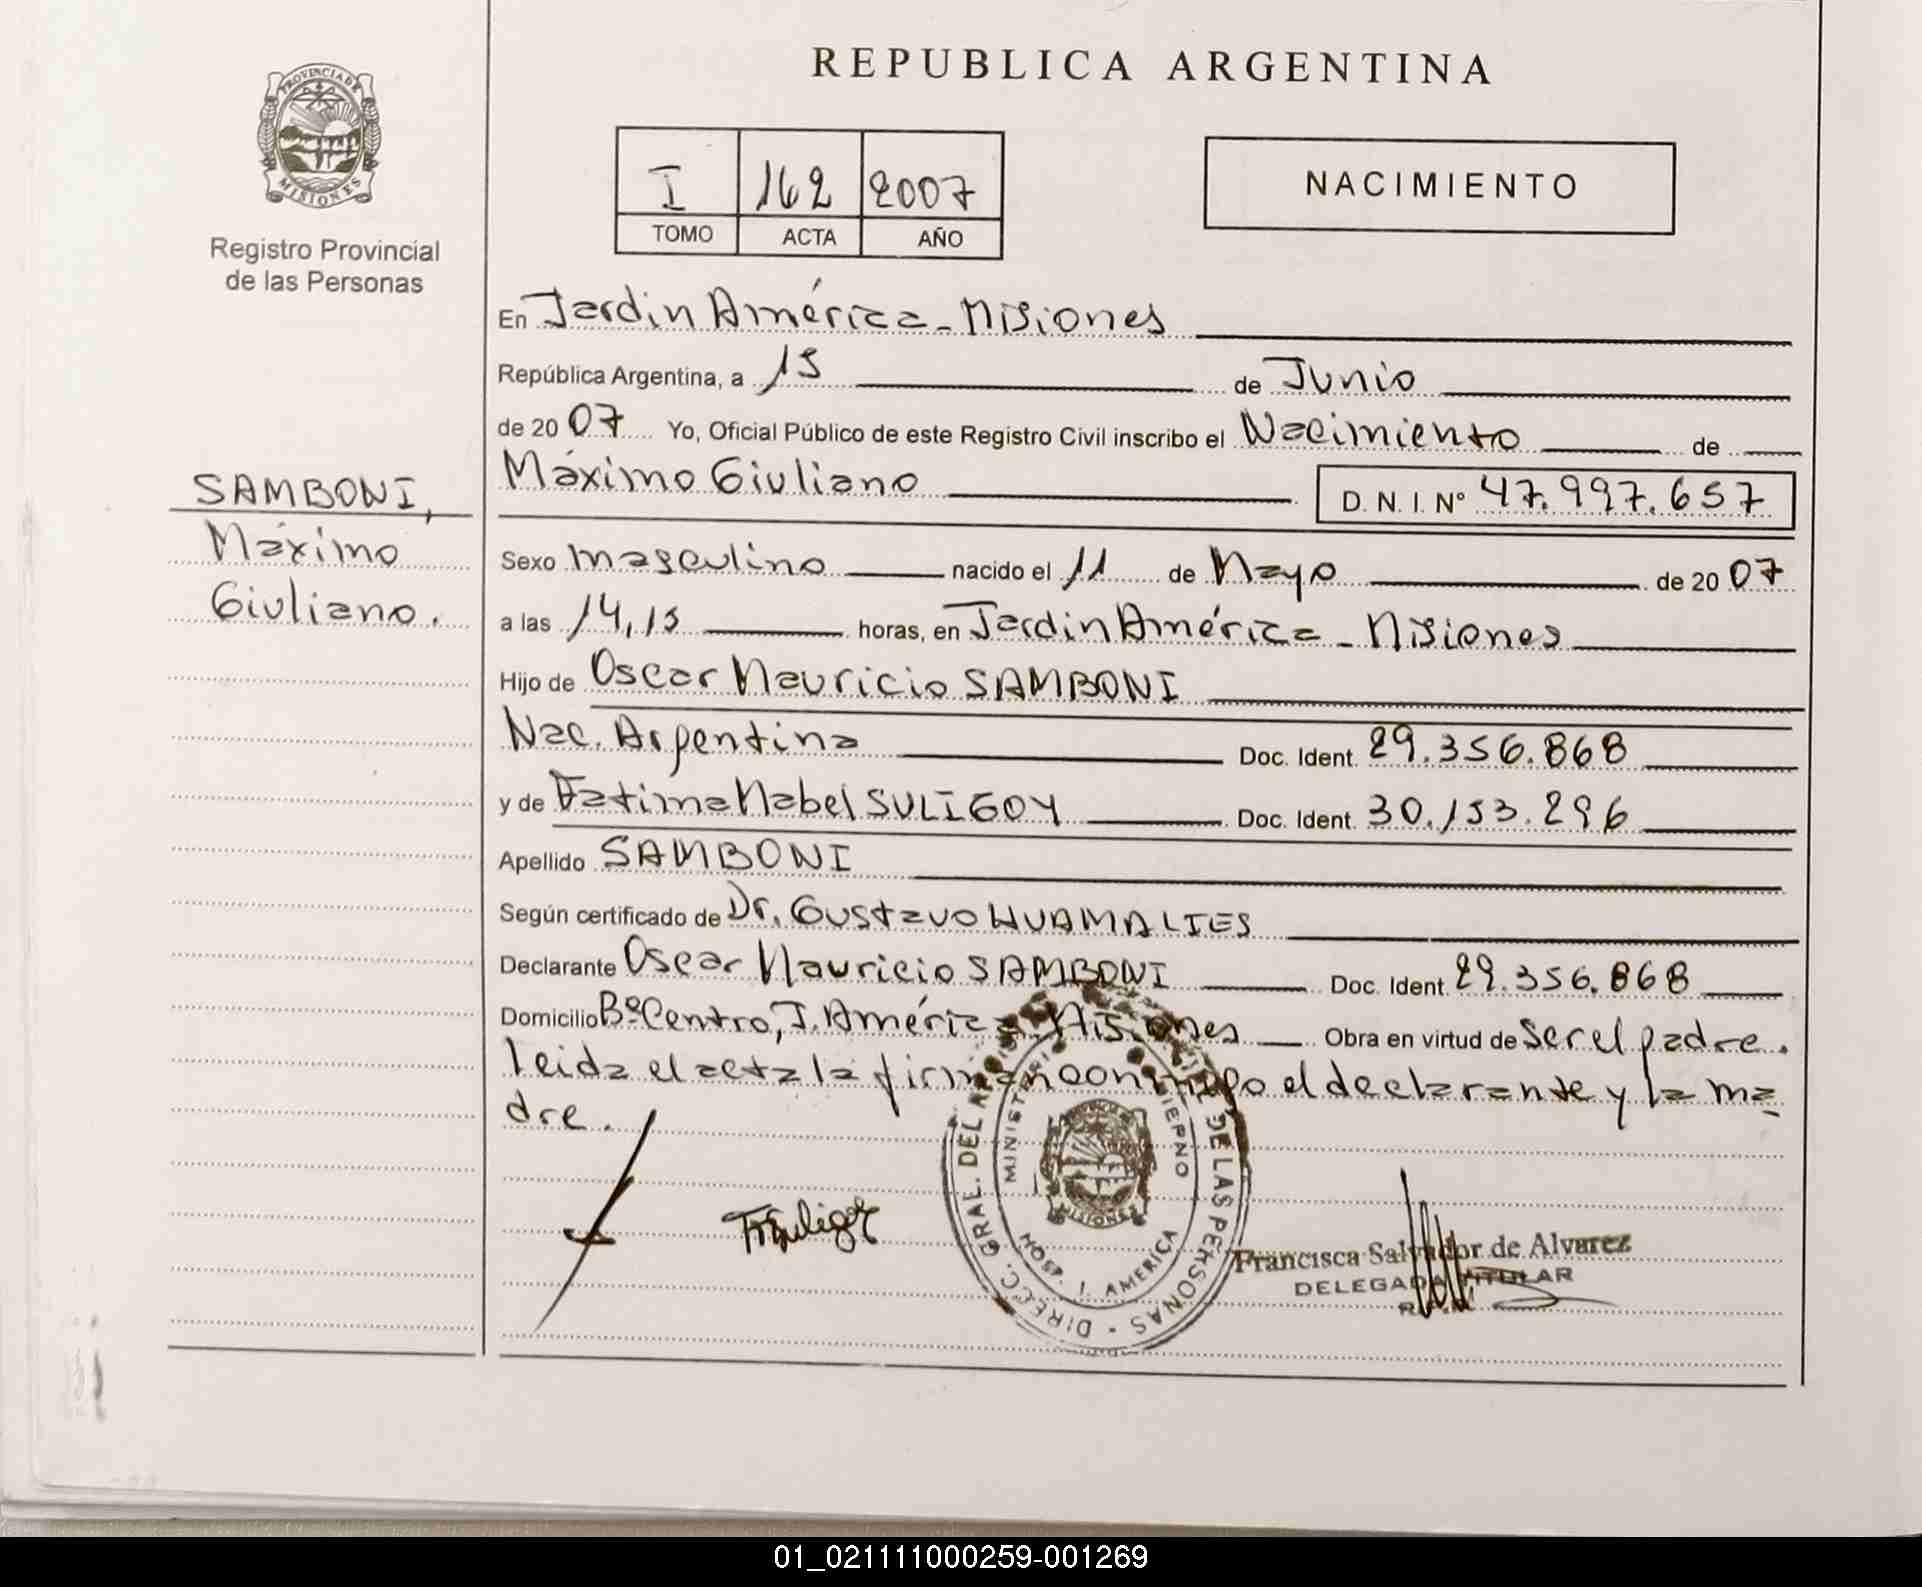 REPUBLICA ARGENTINA
PROVINCIA DE
MISIONES
Registro Provincial
de las Personas
I 162 2007
TOMO ACTA AÑO
NACIMIENTO
SAMBONI,
Máximo
Giuliano.
En Jardin América - Misiones
República Argentina, a 15 de Junio
de 2007 Yo, Oficial Público de este Registro Civil inscribo el Nacimiento de
Máximo Giuliano D. N. I. Nº 47.997.657
Sexo masculino nacido el 11 de Mayo de 2007
a las 14,15 horas, en Jardin América - Misiones
Hijo de Oscar Mauricio SAMBONI
Nac. Argentina Doc. Ident. 29.356.868
y de Fatima Mabel SULIGOY Doc. Ident. 30.153.296
Apellido SAMBONI
Según certificado de Dr. Gustavo HUAMALIES
Declarante Oscar Mauricio SAMBONI Doc. Ident. 29.356.868
Domicilio Bº Centro, J. América Misiones Obra en virtud de ser el padre.
Leida el acta la firman conmigo el declarante y la ma
dre.
DIREC. GRAL. DEL DE LAS PERSONAS
MINISTERIO
HOSP. J. AMERICA
MISIONES
Francisca Salvador de Alvarez
DELEGADA TITULAR
01_021111000259-001269